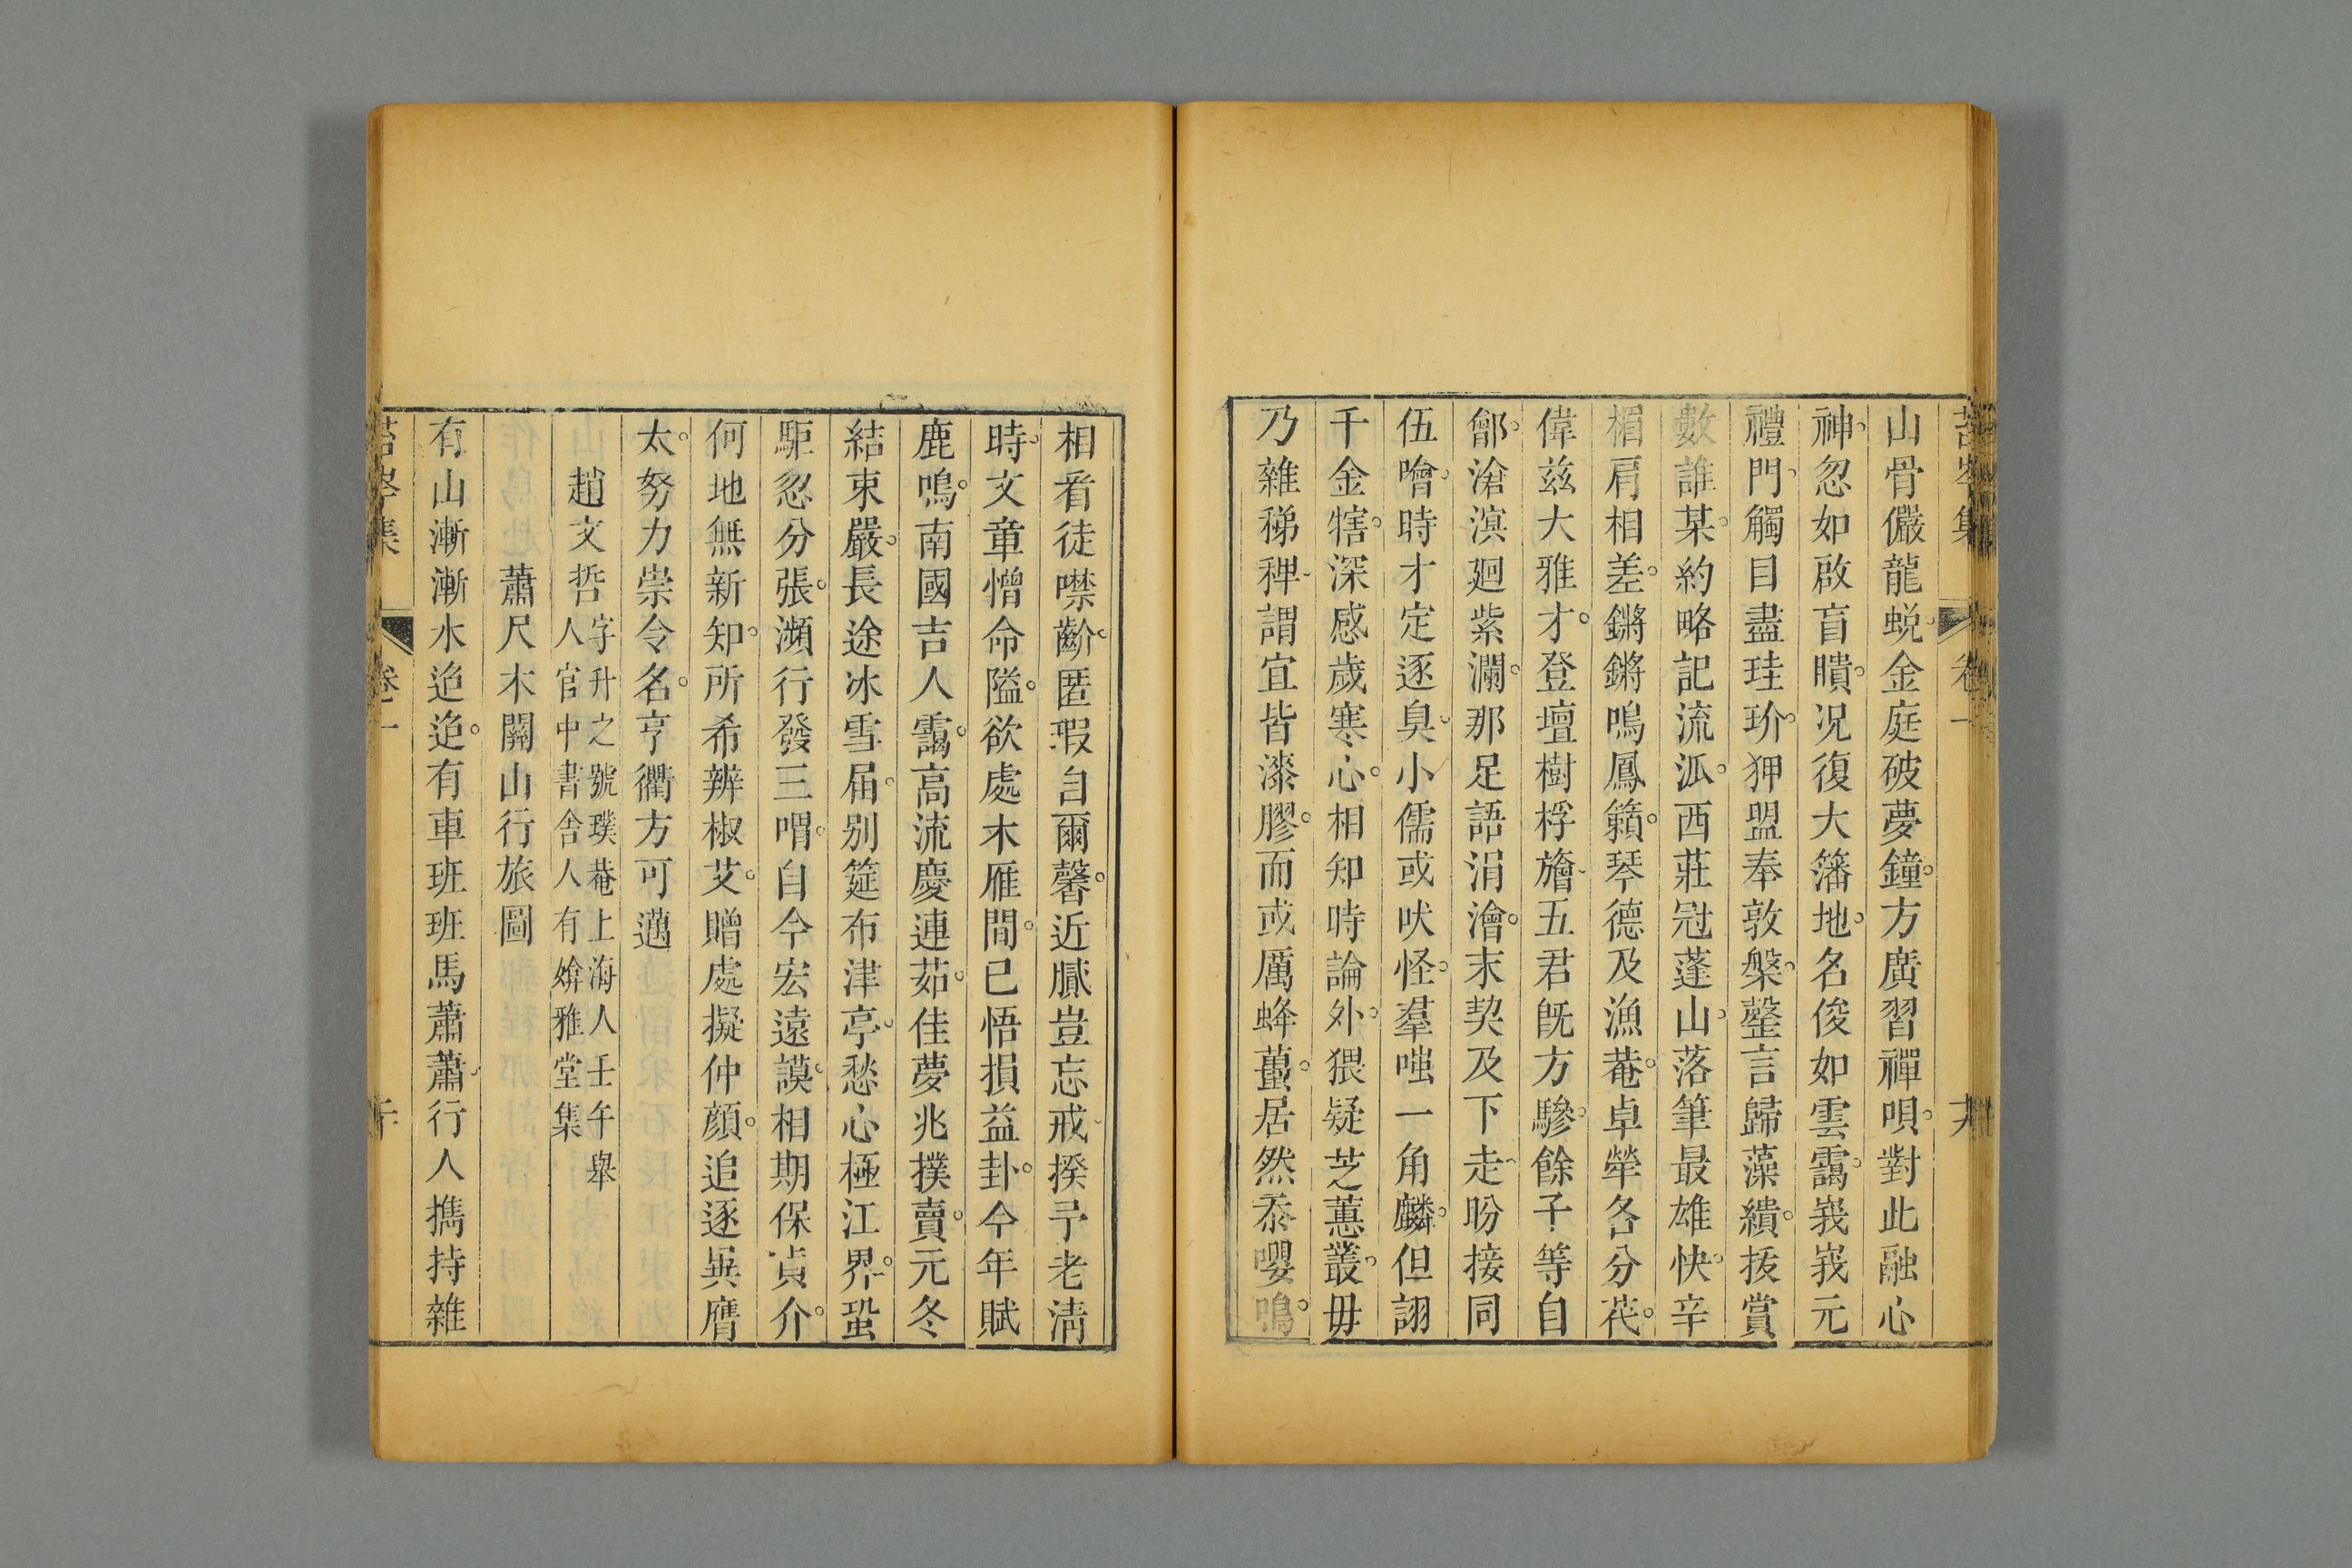 苔岑集 卷一
山骨儼龍蛻金庭破夢鐘方廣習禪唄對此融心
神忽如啟盲瞶况復大籓地名俊如雲靄峩峩元
禮門觸目盡珪玠狎盟奉敦槃磬言歸藻繢拔賞
數誰某約略記流泒西莊冠蓬山落筆最雄快辛
楣肩相差鏘鏘鳴鳳籟琴德及漁菴卓犖各分茷
偉兹大雅才登壇樹桴旝五君旣方驂餘子等自
鄶滄溟廻紫瀾那足語涓澮末契及下走盼接同
伍噲時才定逐臭小儒或吠怪羣嗤一角麟但詡
千金犗深感歲寒心相知時論外猥疑芝蕙叢毋
乃雜稊稗謂宜皆漆膠而或厲蜂蠆居然忝嚶鳴
相看徒噤齘匿瑕自爾馨近膩豈忘戒揆予老淸
時文章憎命隘欲處木雁間已悟損益卦今年賦
鹿鳴南國吉人靄高流慶連茹佳夢兆撲賣元冬
結束嚴長途冰雪届别筵布津亭愁心極江界蛩
駏忽分張瀕行發三喟自今宏遠謨相期保貞介
何地無新知所希辨椒艾贈處擬仲顔追逐與膺
太努力崇令名亨衢方可邁
趙文哲字升之號璞菴上海人壬午舉
人官中書舍人有媕雅堂集
蕭尺木關山行旅圖
有山漸漸水逈逈有車班班馬蕭蕭行人擕持雜
苔岑集 卷一